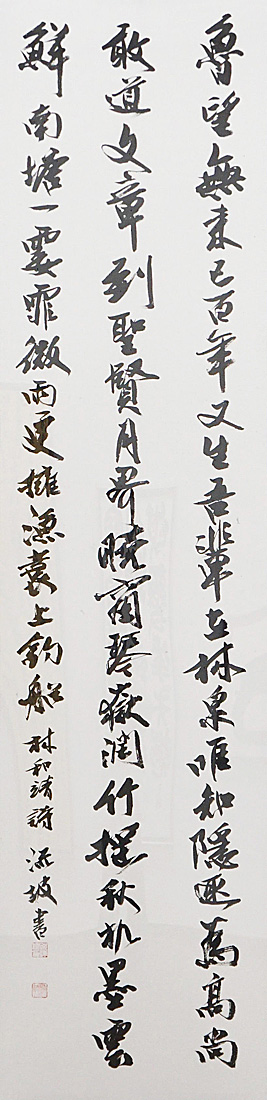 魯望無来已百年又生吾輩在林泉唯知隱遯為高尚
敢道文章到聖賢月界曉窗琴嶽潤竹搖秋机墨雲
鮮南塘一霎霏微雨更擁漁蓑上釣船 林和靖詩 坡書